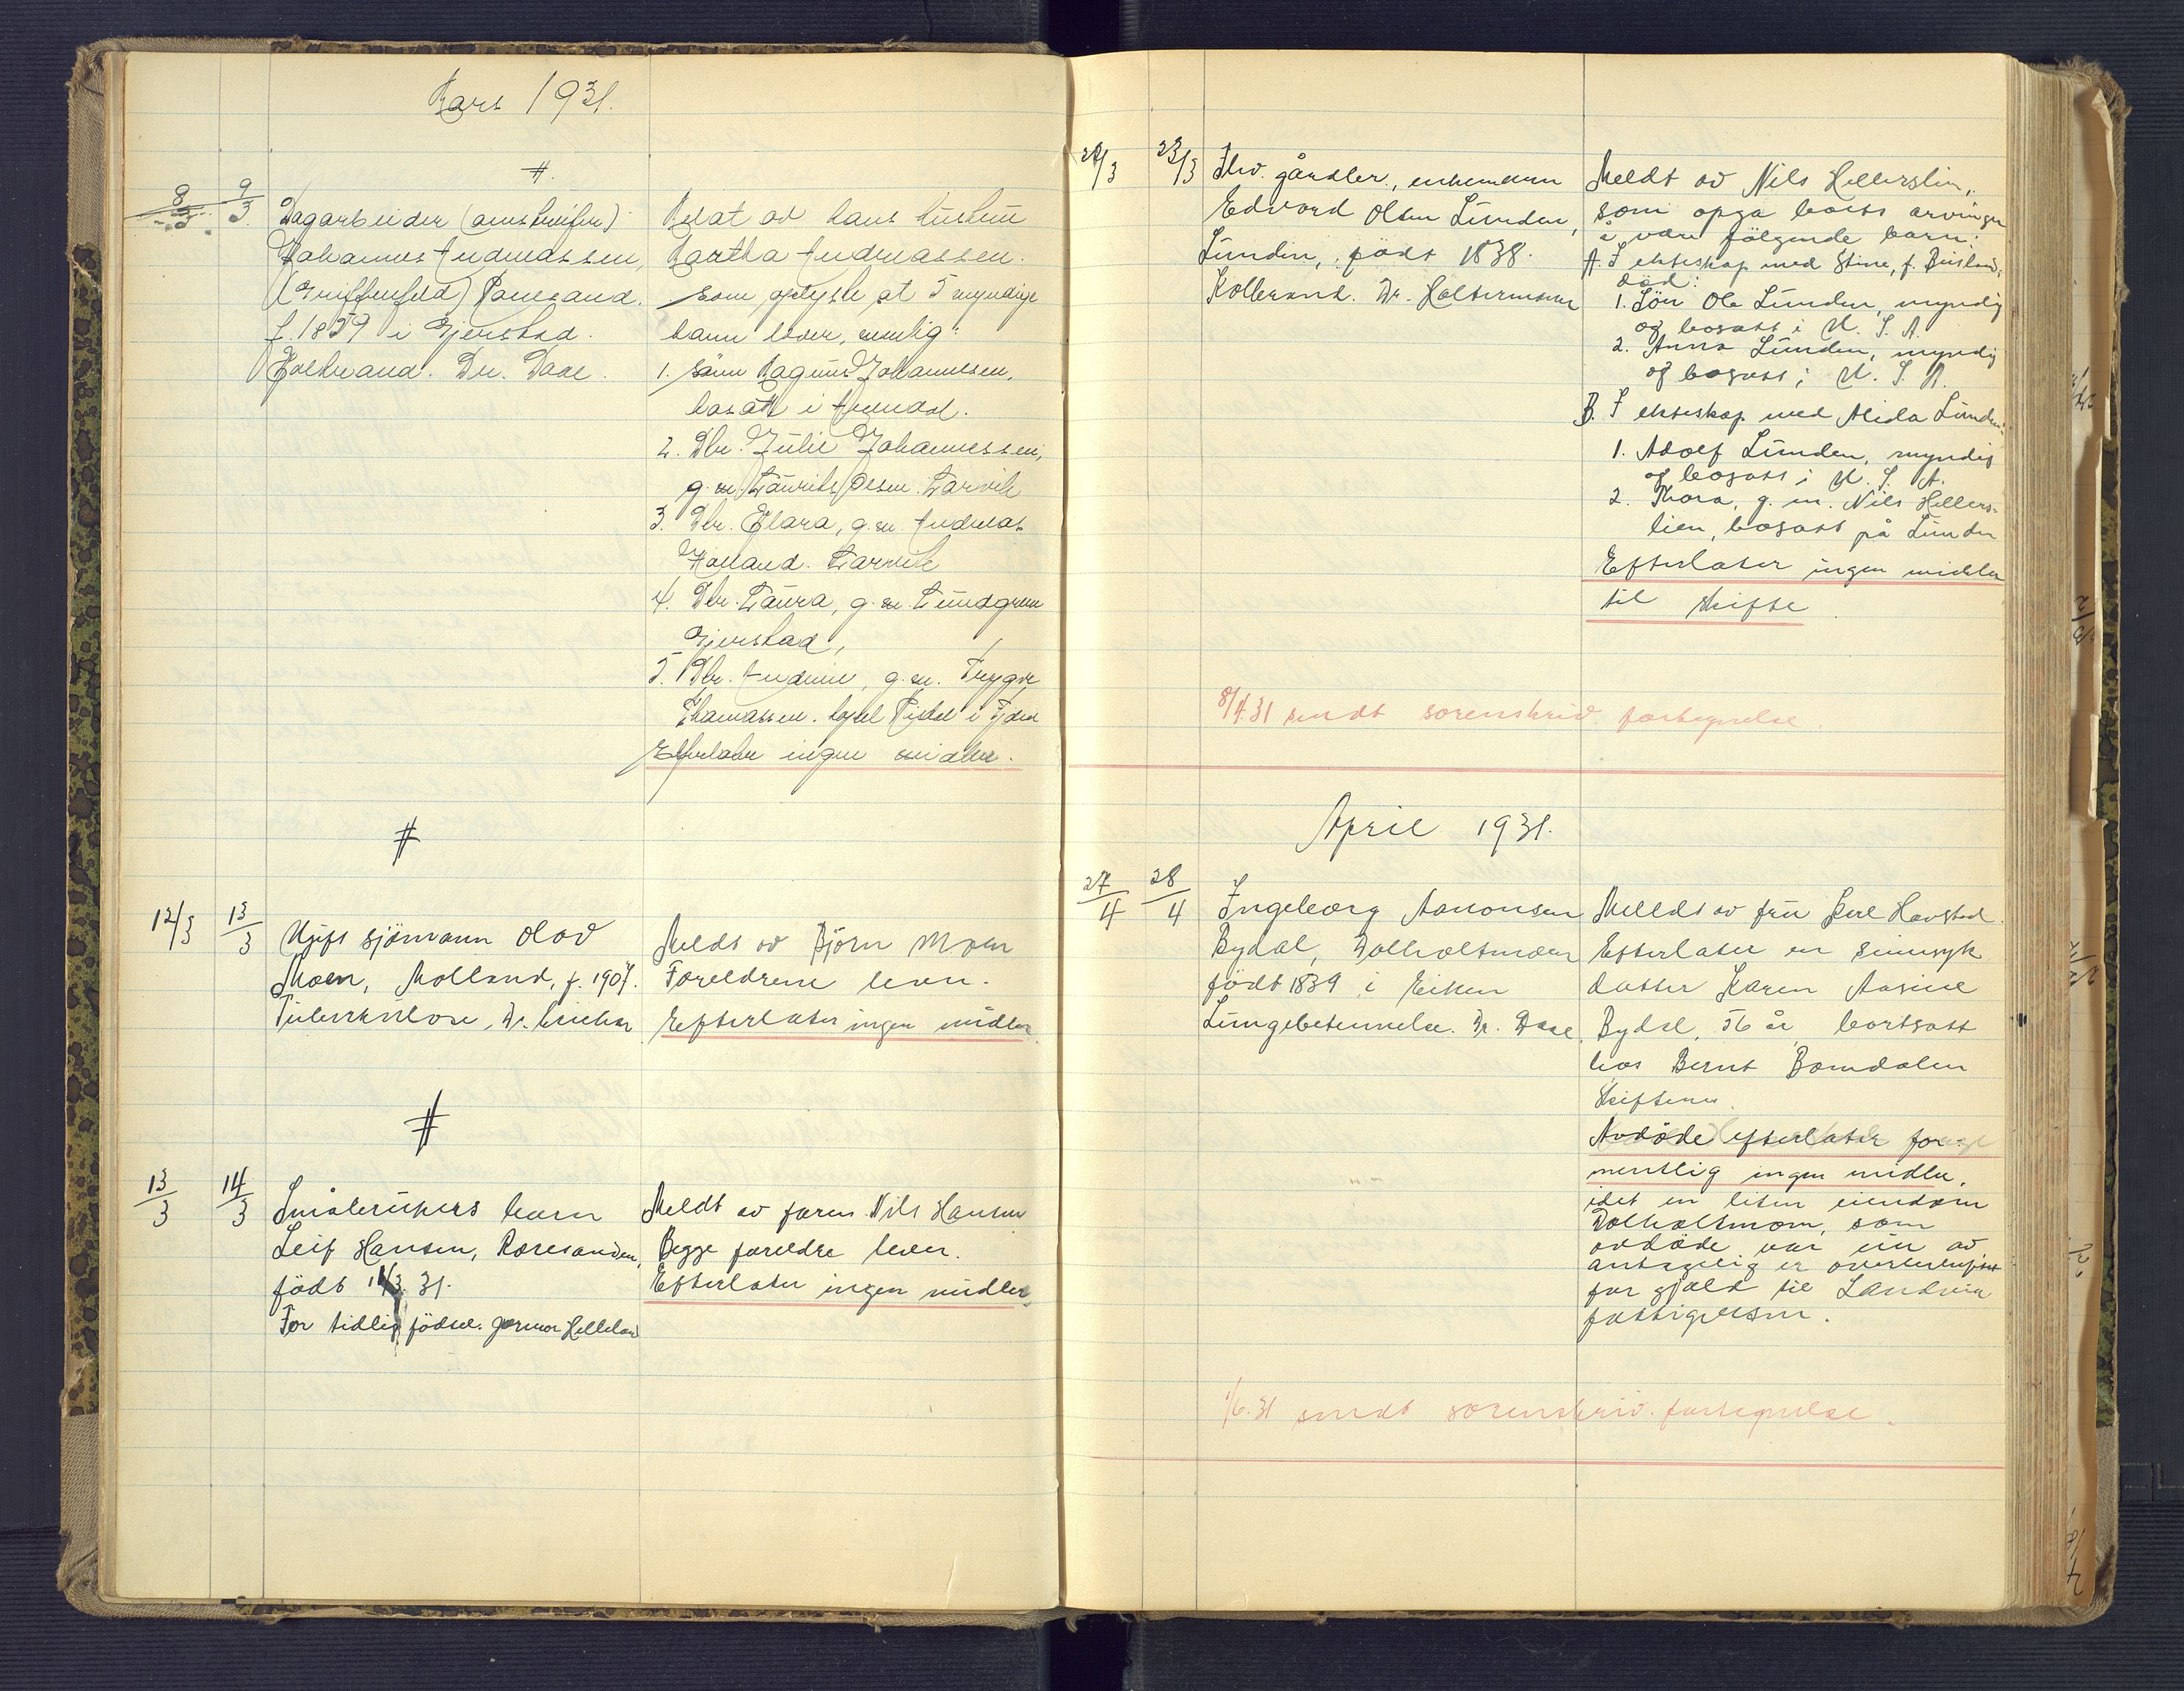 Mars 1931.
#.
8/3 9/3
Dagarbeider (omstreifer)
Johannes Andreassen,
(Griffenfeld) Roresand.
f. 1859 i Gjerstad.
Koldbrand. Dr. Daae.
Meldt av hans hustru
Martha Andreassen.
som oplyste at 5 myndige
barn lever, nemlig:
1. Sønn Magnus Johannesen,
bosatt i Arendal.
2. Dtr. Julie Johannessen,
g. m. Laurits Olsen. Larvik
3. Dtr. Klara, g. m. Andreas
Holland. Larvik
4. Dtr. Laura, g. m. Lundgren
Gjerstad,
5. Dtr. Andrine, g. m. Trygve
Thomassen. i
Efterlater ingen midler.
#
12/3 13/3
Ugift sjömann Olav
Moen, Molland, f. 1907.
Tuberkulose, Dr.
Meldt av Björn Moen
Foreldrene lever.
Efterlater ingen midler
#
13/3 14/3
Småbrukers barn
Leif Hansen, Roresanden,
födt 11/3 31.
For tidlig födsel. Jormor Helleland
Meldt av faren Nils Hansen
Begge foreldre lever.
Efterlater ingen midler
22/3 23/3
Fhv. gårdbr., enkemann
Edvard Olsen Lunden,
Lunden, födt 1838.
Kolbrand. Dr. Holtermann
Meldt av Nils Hellerslien,
som opga boets arvinger
å være följende barn:
A. I ekteskap med Stine, f. Birkeland,
död:
1. Sön Ole Lunden, myndig
og bosatt i U. S. A.
2. Anna Lunden, myndig
og bosatt i U. S. A.
B. I ekteskap med Alida Lunden:
1. Adolf Lunden, myndig
og bosatt i U. S. A.
2. Thora, g. m. Nils Hellers-
lien, bosatt på Lunden
Efterlater ingen midler
til skifte.
8/4.31 sendt sorenskriv. fortegnelse.
April 1931.
27/4 28/4
Ingeborg Aanonsen
Bydal, Dalholtmoen
födt 1839 i Eiken
Lungebetennelse. Dr. Daae.
Meldt av fru Berl Havstad.
Efterlater en sinnsyk
datter Karen Aasine
Bydal, 56 år, bortsatt
hos Bernt Bomdalen
Skiftenes.
Avdöde efterlater for-
mentlig ingen midler,
idet en liten eiendom
Dalholtmoen, som
avdöde var eier av
antagelig er overbeheftet
for gjæld til Landvik
fattigvesen.
1/6.31 sendt sorenskriv. fortegnelse.